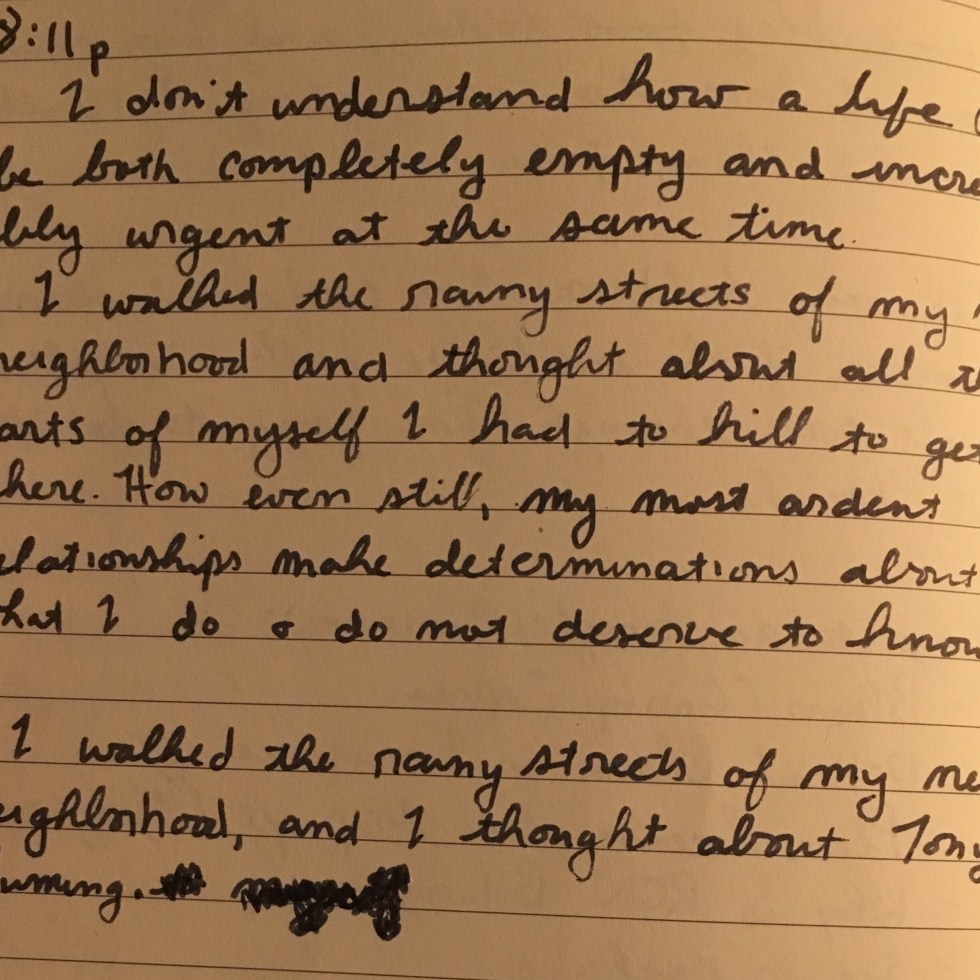 8:11p
I don't understand how a life
be both completely empty and incre
bly urgent at the same time.
I walked the rainy streets of my
neighborhood and thought about all th
arts of myself I had to kill to get
here. How even still, my most ardent
elationships make determinations about
hat I do or do not deserve to know
I walked the rainy streets of my ne
eighborhood, and I thought about Tony
uming.